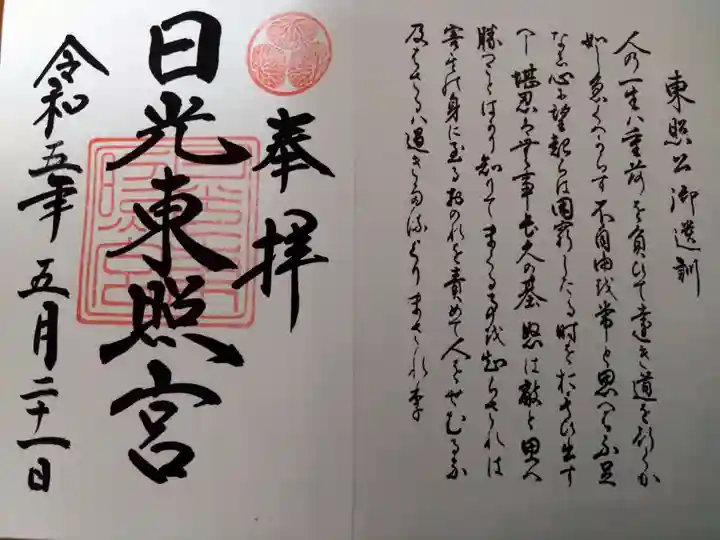 東照公御遺訓
人の一生ハ重荷を負ひて遠き道を行くか
如し急くへからす 不自由を常と思へハ不足
なし心に望起らは困窮したる時をおもひ出す
へし 堪忍ハ無事長久の基 怒は敵と思へ
勝つことはかり知りてまくる事を知らされは
害其の身に至る おのれを責めて人をせむるな
及はさるハ過きたるよりまされり
奉拝
日光東照宮
令和五年 五月二十一日